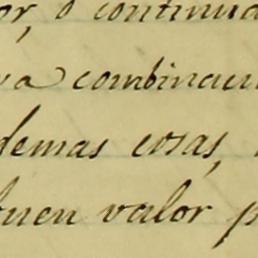 or, o continua
va combinaci
demas cosas,
buen valor p